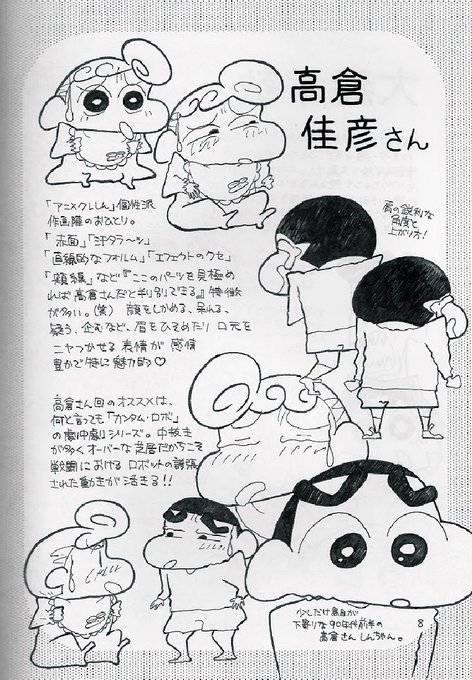 高倉
佳彦さん
「アニメクレしん」個性派
作画陣のおひとり。
「赤面」「ヨダラ〜ッ」
「直線的なフォルム」「エフェクトのクセ」
「頬線」など『ここのパーツを見極め
れば高倉さんだと判別できる』特徴
が多い。(笑) 顔をしかめる、呆れる、
疑う、企むなど、眉をひそめたり口元を
ニヤつかせる表情が感情
豊かで特に魅力的♡
肩の鋭利な
角度と
上がり方!
高倉さん回のオススメは、
何と言っても「カンタム・ロボ」
の劇中劇シリーズ。中抜き
が多くオーバーな芝居だからこそ
戦闘における ロボットの誇張
された動きが活きる!!
少しだけ黒目が
下寄りな90年代前半の
高倉さん しんちゃん。
8